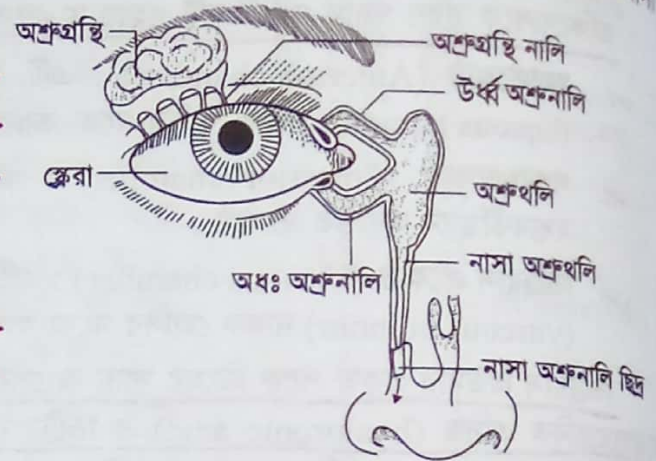 অশ্রুগ্রন্থি
অশ্রুগ্রন্থি নালি
ঊর্ধ্ব অশ্রুনালি
স্ক্লেরা
অশ্রুথলি
নাসা অশ্রুথলি
অধঃ অশ্রুনালি
নাসা অশ্রুনালি ছিদ্র